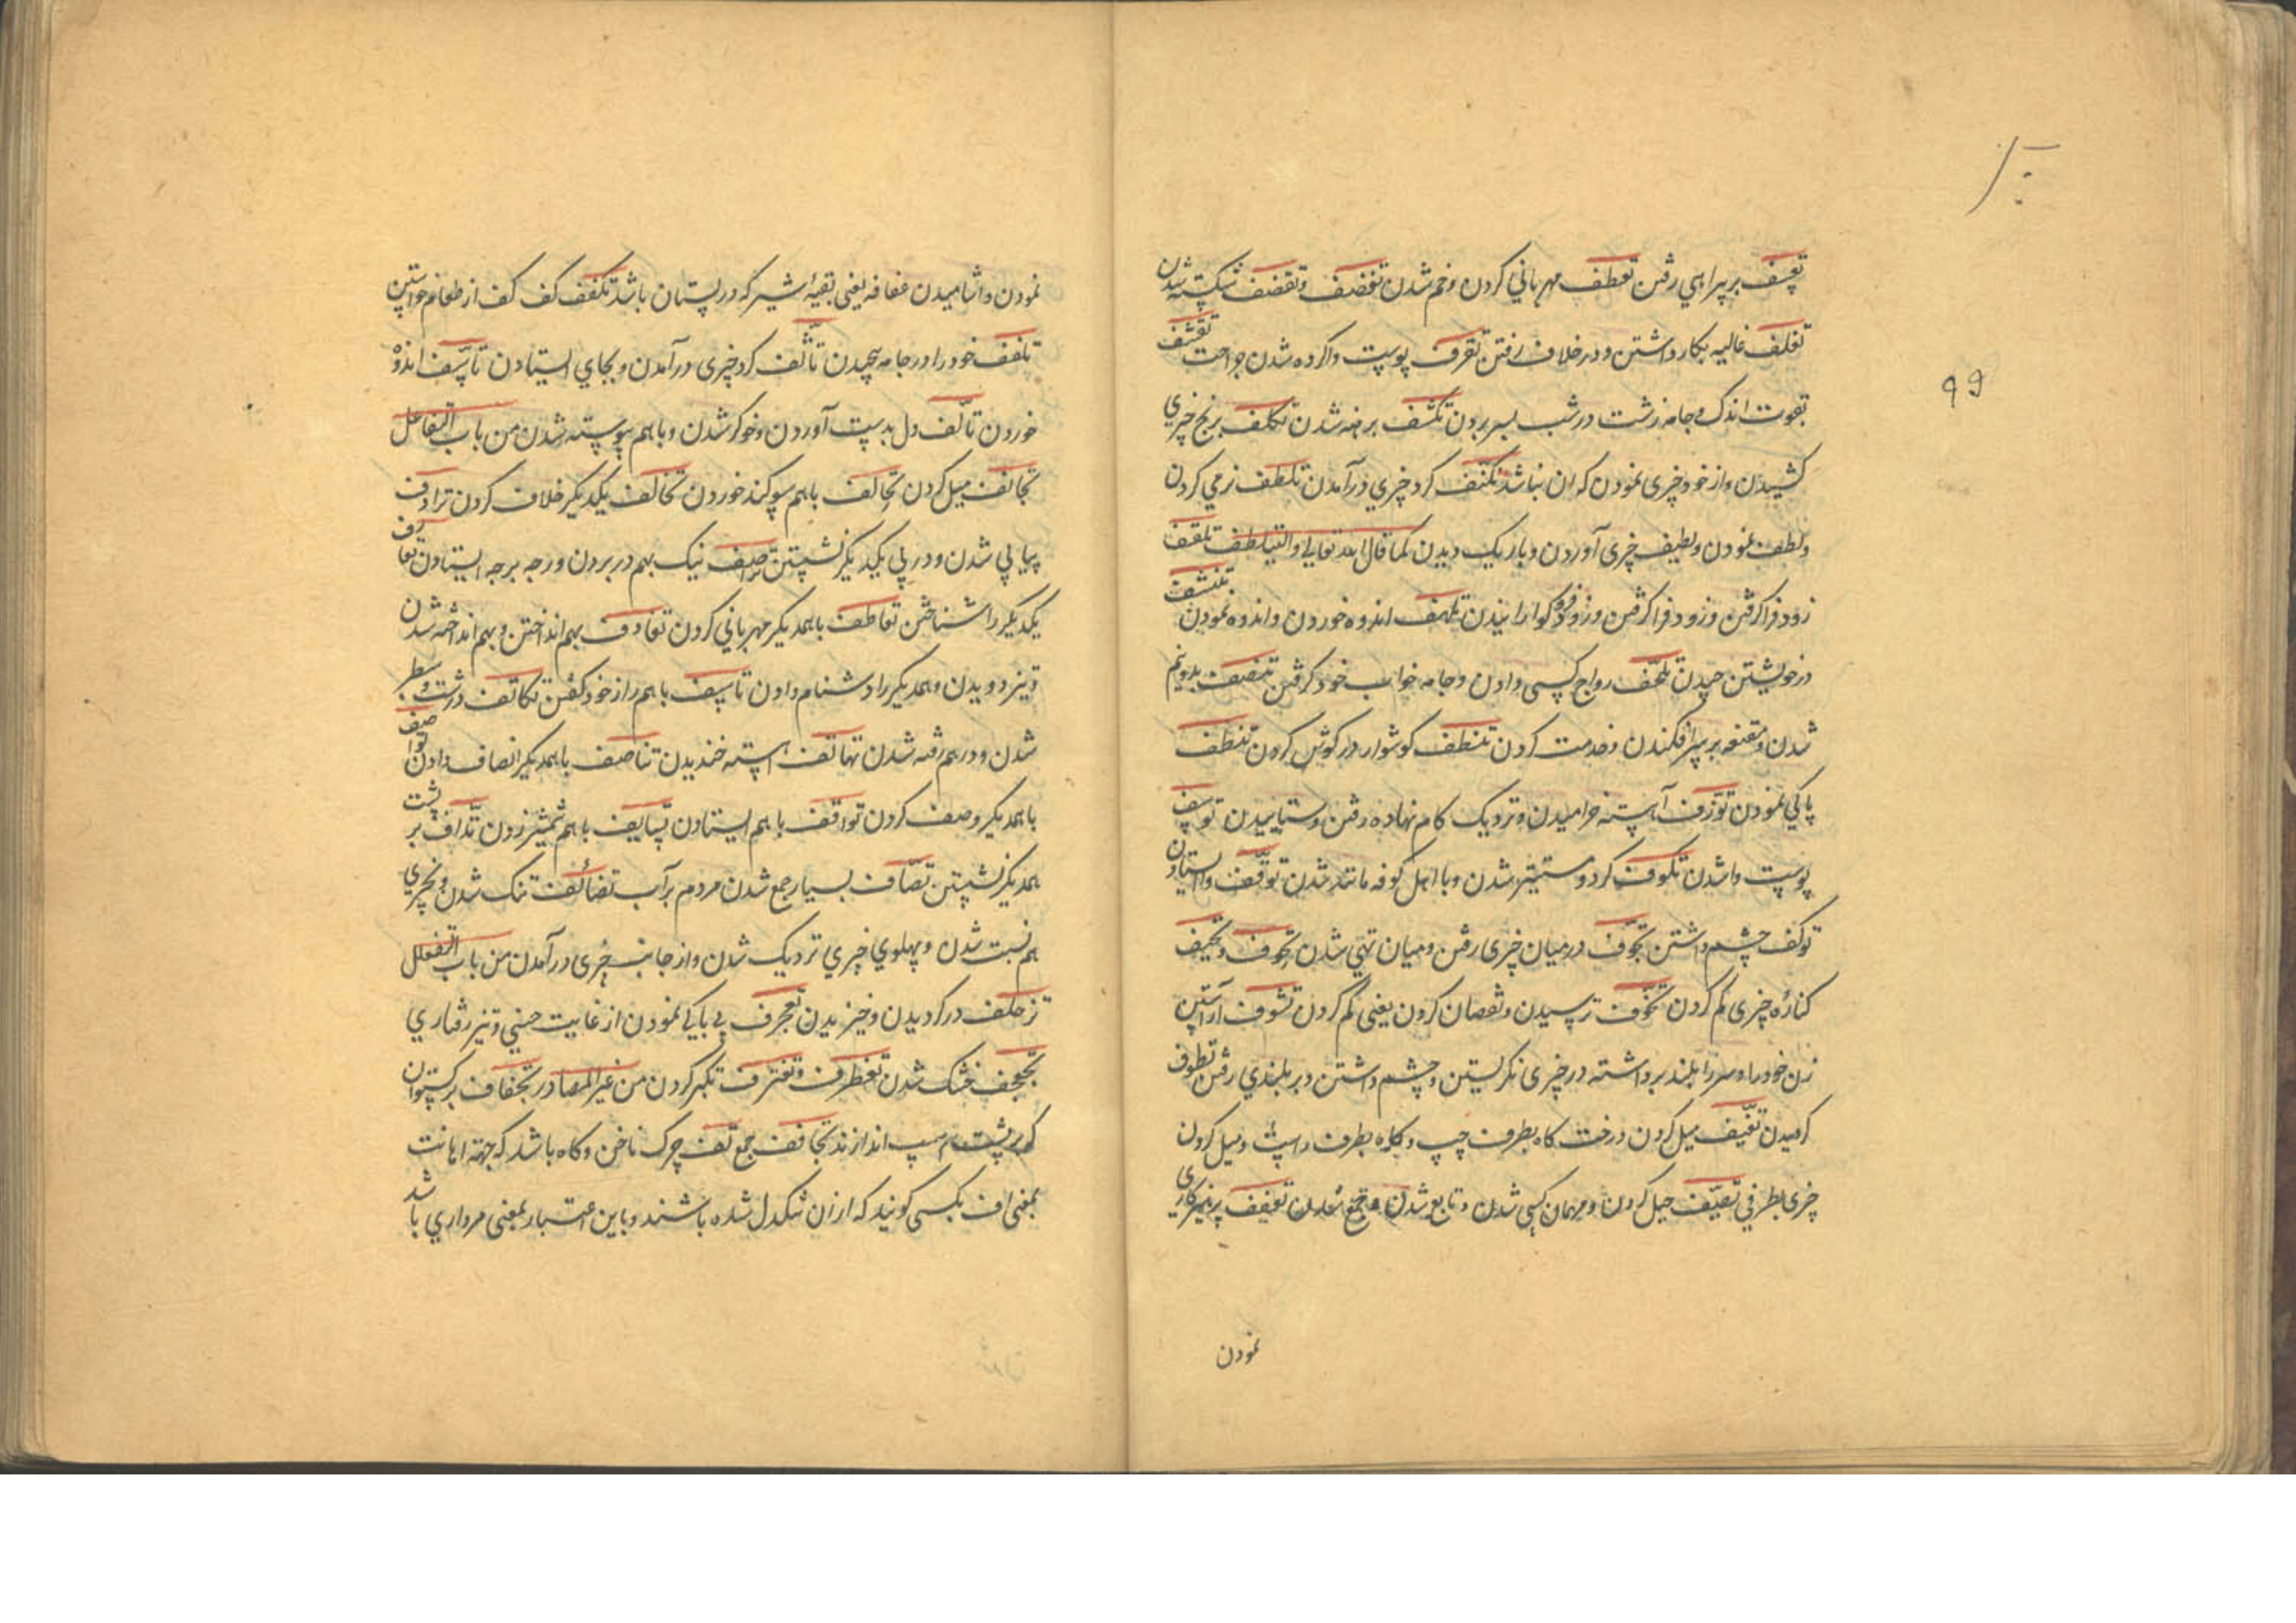 ٩٩
تعسف بر بیراهی رفتن تعطف مهربانی کردن و خم شدن تغضف و تقصف شکسته شدن
تغلف غالیه بکار داشتن و در غلاف رفتن تقرف پوست واکرده شدن جراحت تقشف
بقوت اندک و جامه زشت در شب بسر بردن تکشف برهنه شدن تکلف برنج چیزی
کشیدن و از خود چیزی نمودن که ان نباشد تکنف کرد چیزی درآمدن تلطف نرمی کردن
ولطف نمودن و لطیف چیزی آوردن و باریک دیدن کما قال الله تعالی ولیتلطف تلقف
زود فرا کرفتن و زود فرا کرفتن و زود فرو کوارانیدن تلهف اندوه خوردن و اندوه نمودن تنشف
در خویشتن چیدن تلحف رواج کسی دادن و جامه خواب خود کرفتن تنصف بدو نیم
شدن و مقنعه بر سر افکندن و خدمت کردن تنطف کوشوار در کوش کردن تنظف
پاکی نمودن توزف آهسته خرامیدن و نزدیک کام نهاده رفتن و ستاییدن توسف
پوست واشدن تکوف کرد و مستدیر شدن و با اهل کوفه مانند شدن توقف وا ایستادن
توکف چشم داشتن تجوف در میان چیزی رفتن و میان تهی شدن تحوف و تحیف
کنارهٔ چیزی کم کردن تخوف ترسیدن و نقصان کردن یعنی کم کردن تشوف آراستن
زن خود را و سر را بلند برداشته در چیزی نکریستن و چشم داشتن و بر بلندی رفتن تطوف
کردیدن تفیف میل کردن درخت کاه بطرف چپ و کاه بطرف راست و میل کردن
چیزی بطرفی تضیف میل کردن و مهمان کسی شدن و تابع شدن و جمع شدن تعفف پرهیزکاری
نمودن
نمودن و آشامیدن عفافه یعنی بقیهٔ شیر که در پستان باشد تکفف کف کف از طعام خواستن
تلفف خود را در جامه پیچیدن تأثف کرد چیزی درآمدن و بجای ایستادن تأسف اندوه
خوردن تألف دل بدست آوردن و خوکر شدن و باهم پیوسته شدن من باب التفاعل
تجانف میل کردن تحالف باهم سوکند خوردن تخالف یکدیکر خلاف کردن ترادف
پیاپی شدن و در پی یکدیکر نشستن تراصف نیک بهم در بردن و رجه برجه ایستادن تعارف
یکدیکر را شناختن تعاطف باهمدیکر مهربانی کردن تقاذف بهم انداختن و بهم انداخته شدن
و تیز دویدن و همدیکر را دشنام دادن تآسف باهم راز خود کفتن تکاثف درشت و سطبر
شدن و درهم رفته شدن تهاتف آهسته خندیدن تناصف باهمدیکر انصاف دادن تواصف
باهمدیکر وصف کردن تواقف باهم ایستادن تسایف باهم شمشیر زدن تداف بر پشت
همدیکر نشستن تصاف بسیار جمع شدن مردم بر آب تضائف تنک شدن و بچیزی
هم نسبت شدن و پهلوی چیزی نزدیک شدن و از جانب چیزی درآمدن من باب التفعلل
تزحلف در کردیدن و خیزیدن تعجرف بی باکی نمودن از غایت و تیز رفتاری
تجفجف خشک شدن تغطرف و تغترف تکبر کردن من غیر المصادر تجفاف برکستوان
که بر پشت اسپ اندازند تجافف جمع تف چرک ناخن و کاه باشد که جهت اهانت
بمعنی اف بکسی کویند که از ان تنکدل شده باشند و باین اعتبار بمعنی مرداری باشد